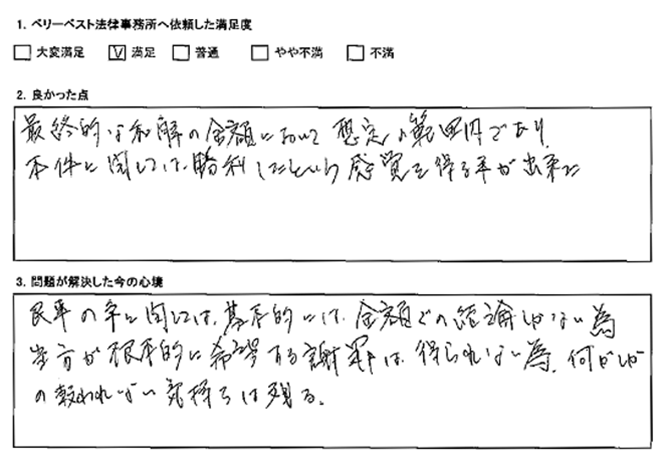 1. ベリーベスト法律事務所へ依頼した満足度
□ 大変満足 ☑ 満足 □ 普通 □ やや不満 □ 不満
2. 良かった点
最終的な和解の金額において想定の範囲内であり、
本件に関しては、勝利したという感覚を得る事が出来た
3. 問題が解決した今の心境
民事の争に関しては、基本的には、金額での結論しかない為
当方が根本的に希望する謝罪は、得られない為、何かしか
の報われない気持ちは残る。